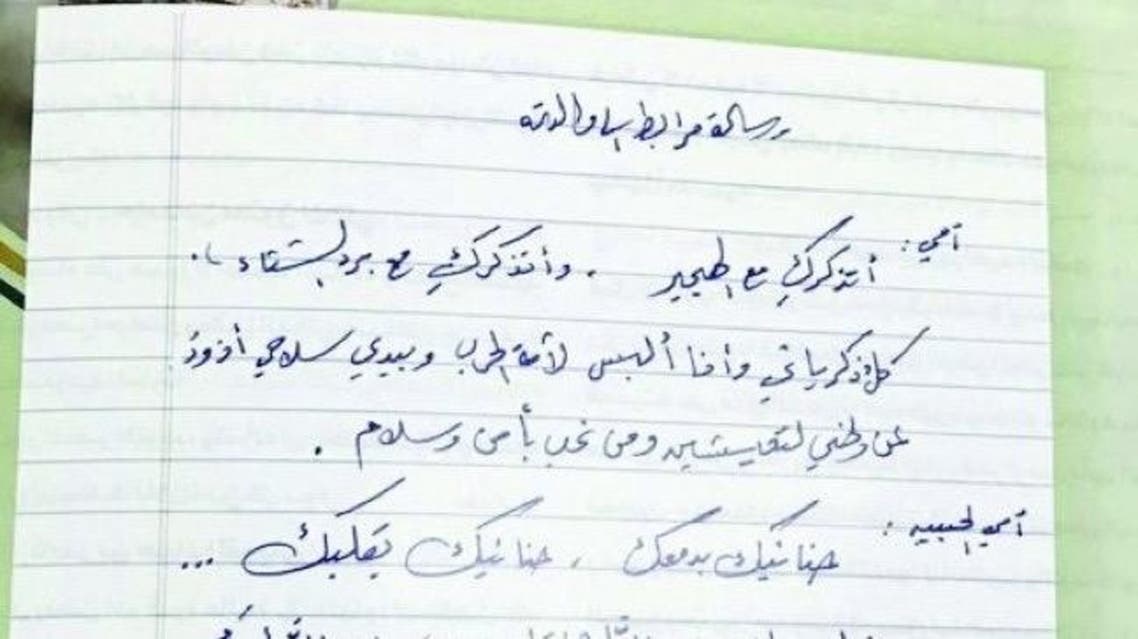 رسالة مرابط إلى والدته
أمي :
أتذكركِ مع الهجير . وأتذكركِ مع برد الشتاء ..
كل ذكرياتي وأنا ألبس لأمة الحرب وبيدي سلاحي أذودُ
عن وطني لتعيشين ومن نحب بأمن وسلام .
أمي الحبيبه :
حنانيك بدمعك .. حنانيك بقلبك ...